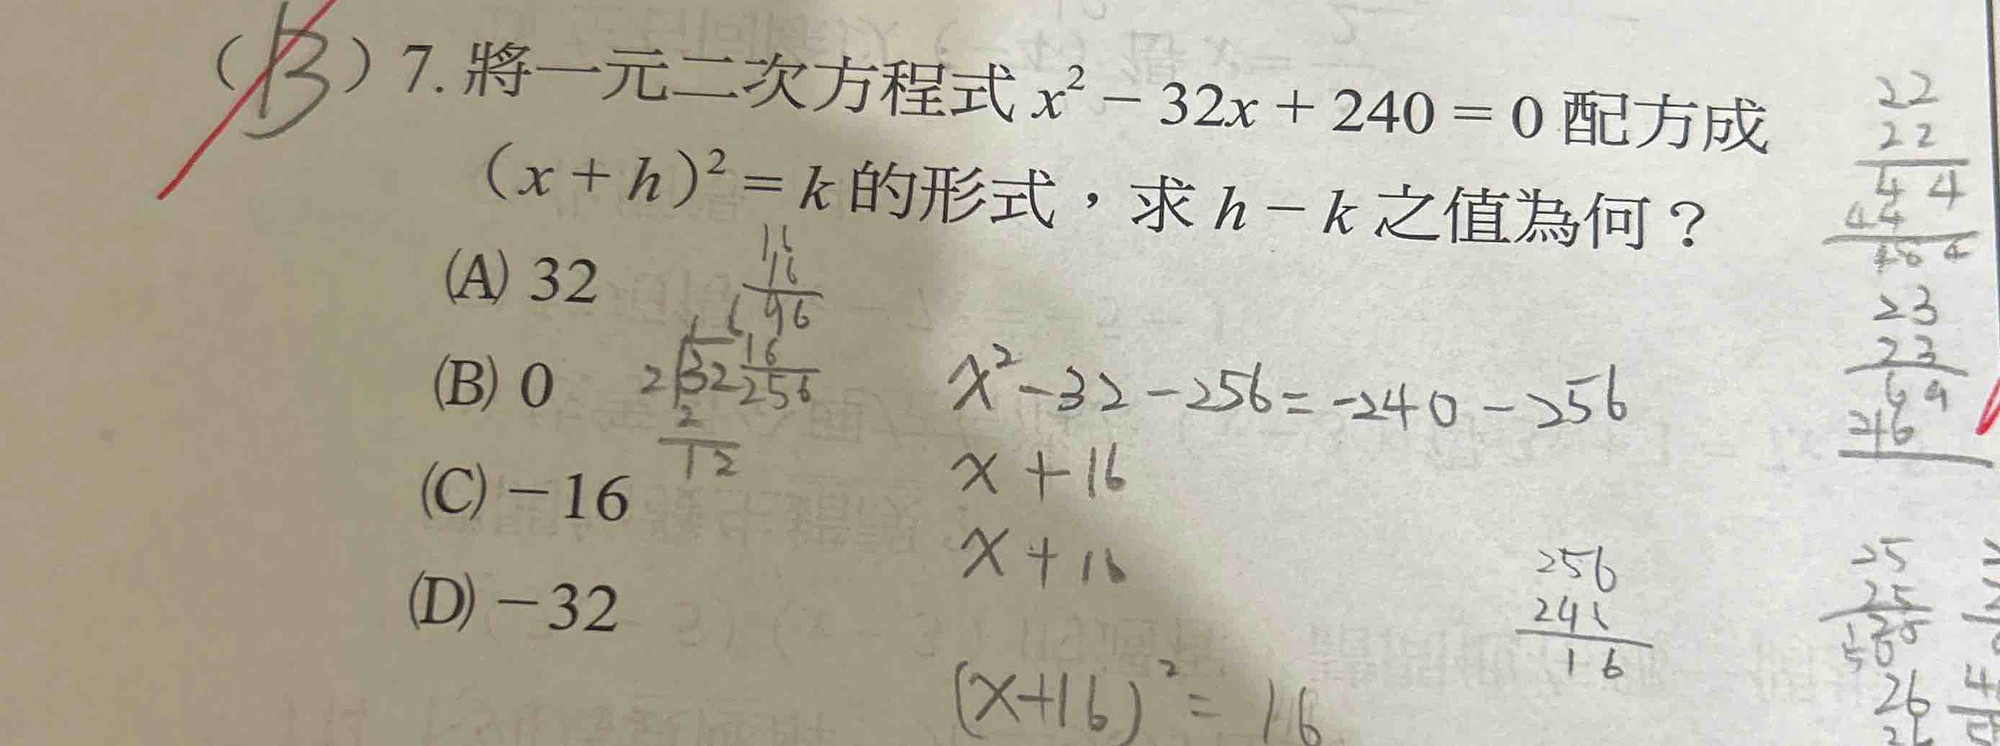 (B) 7. 將一元二次方程式 x² − 32x + 240 = 0 配方成
(x + h)² = k 的形式,求 h − k 之值為何?
(A) 32
(B) 0
(C) −16
(D) −32
16
16
96
16
256
16
2 32
2
12
x² − 32 − 256 = −240 − 256
x + 16
x + 16
(x+16)² = 16
256
16
22
22
44
44
484
23
23
69
46
25
25
26